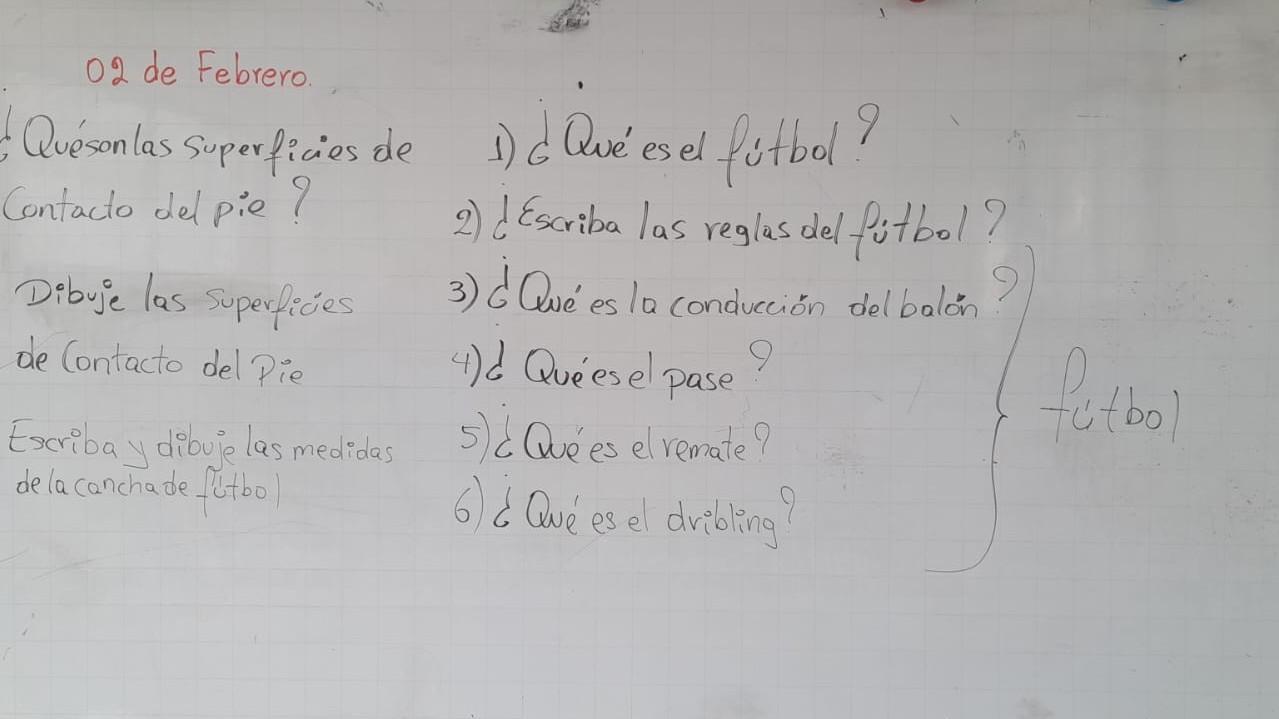 02 de Febrero.
¿Qué son las superficies de
Contacto del pie?
Dibuje las superficies
de Contacto del Pie
Escriba y dibuje las medidas
de la cancha de fútbol
1) ¿Qué es el fútbol?
2) ¿Escriba las reglas del fútbol?
3) ¿Qué es la conducción del balón?
4) ¿Qué es el pase?
5) ¿Qué es el remate?
6) ¿Qué es el dribling?
fútbol